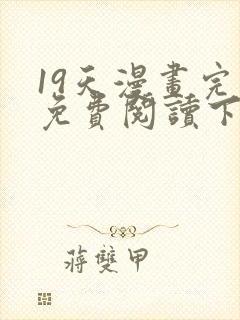 19天漫畫完
免費閱讀下
蔣雙甲